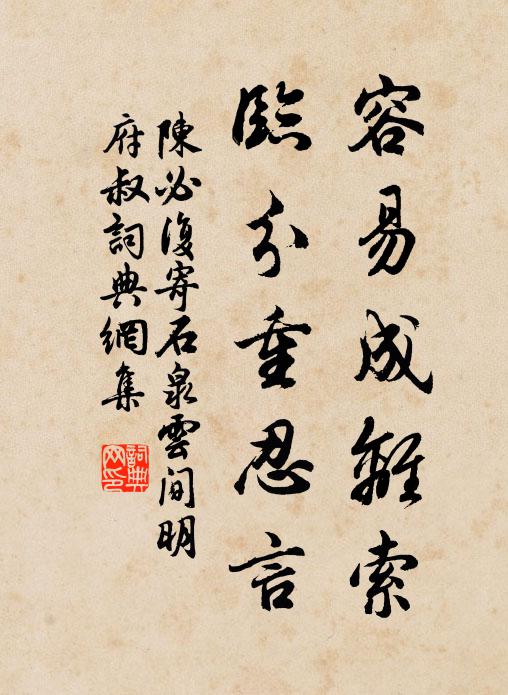 容易成離索
臨分重忍言
陳必復寄石泉雲間明
府叔詞典網集
詞典網印